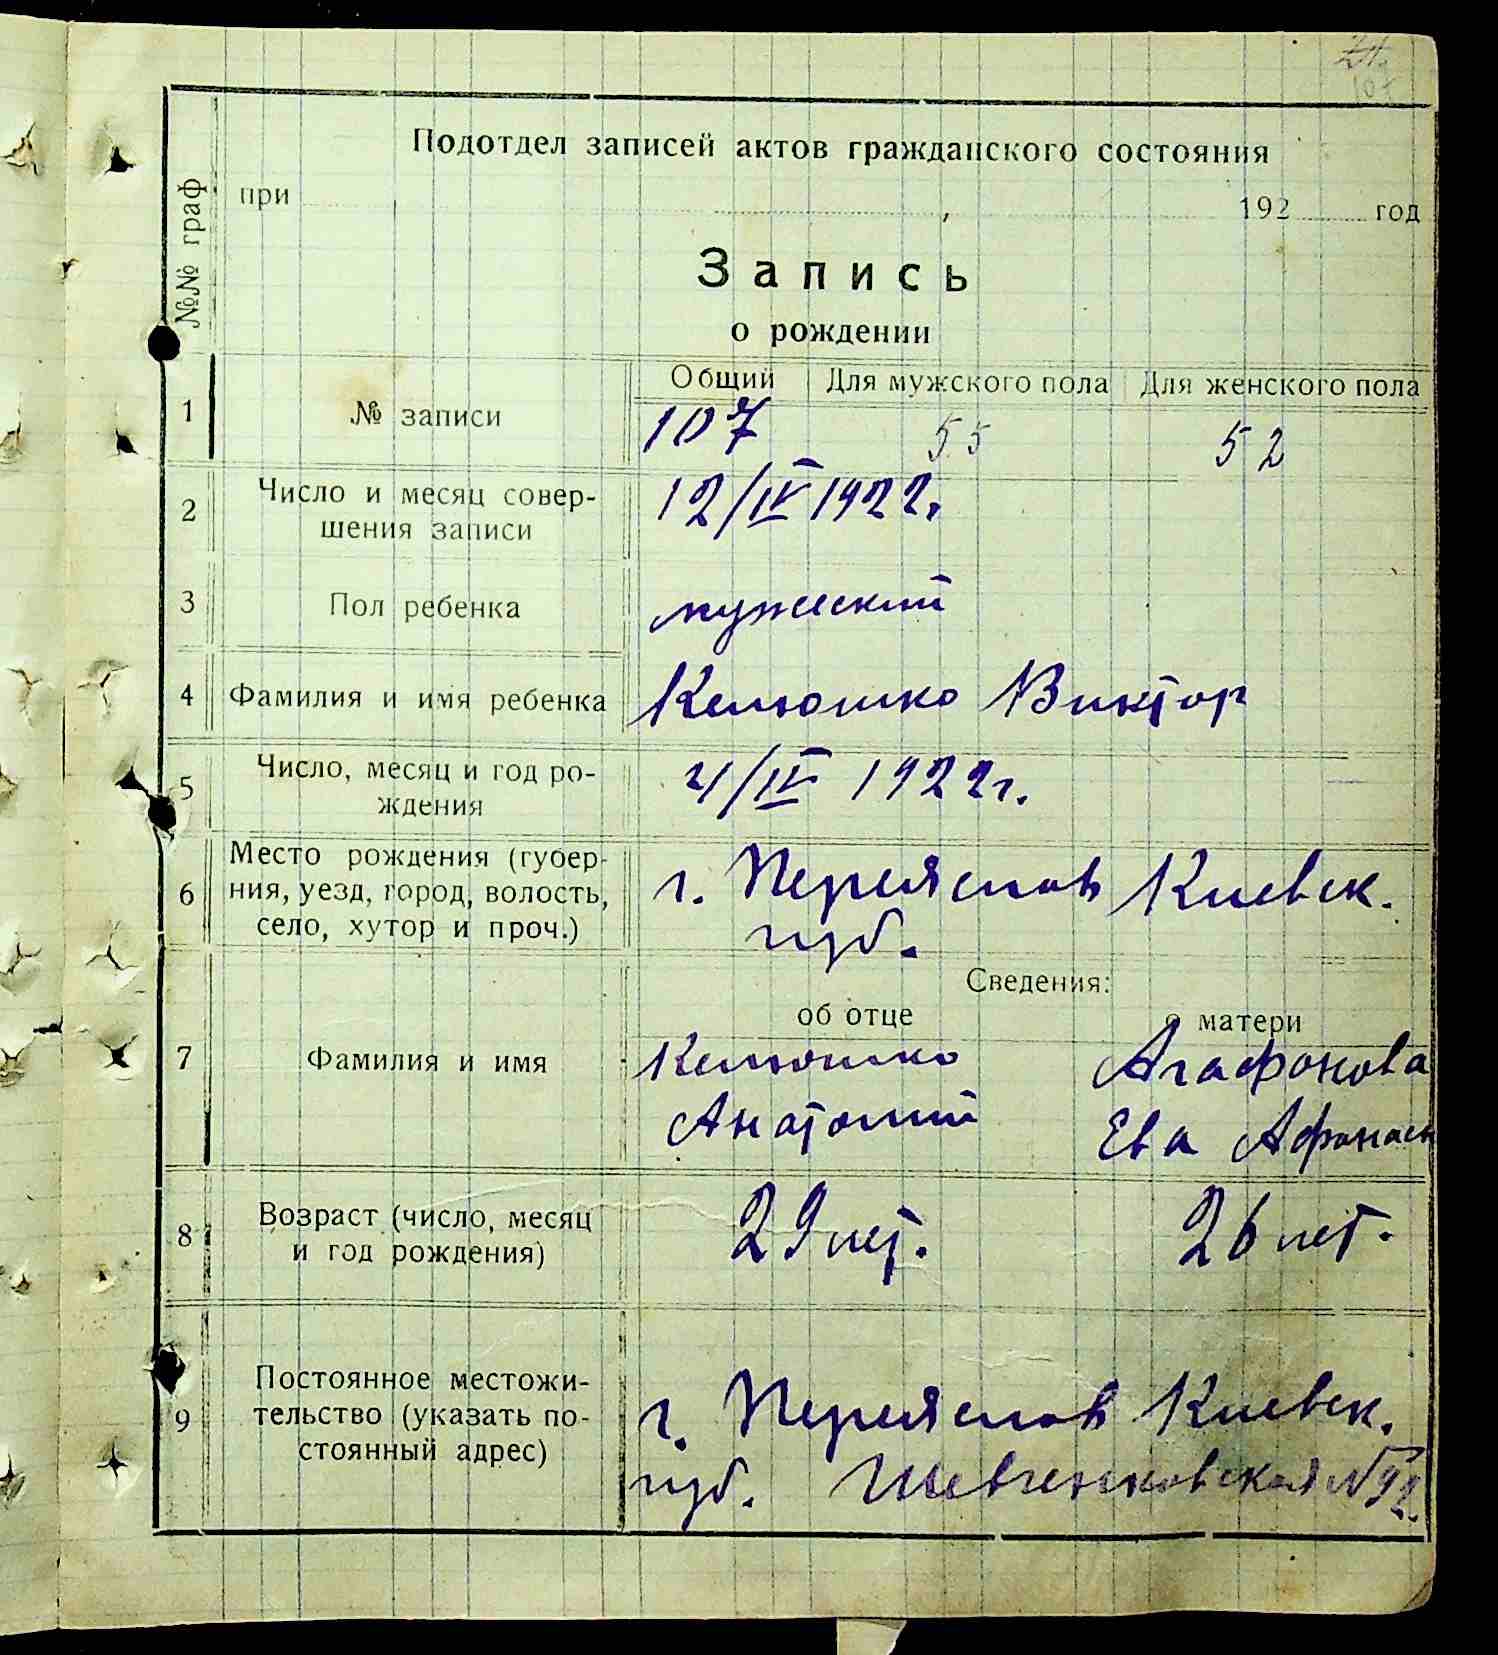 107
Подотдел записей актов гражданского состояния
при , 192 год
№№ граф
Запись
о рождении
Общий Для мужского пола Для женского пола
1 № записи 107 55 52
2 Число и месяц совер-
шения записи
12/IV 1922г.
3 Пол ребенка мужеский
4 Фамилия и имя ребенка Келюшко Виктор
5 Число, месяц и год ро-
ждения
4/IV 1922г.
6 Место рождения (губер-
ния, уезд, город, волость,
село, хутор и проч.)
г. Переяслов Киевск.
губ.
Сведения:
об отце о матери
7 Фамилия и имя Келюшко Агафонова
Анатолий Ева Афанась
8 Возраст (число, месяц
и год рождения)
29 лет. 26 лет.
9 Постоянное местожи-
тельство (указать по-
стоянный адрес)
г. Переяслов Киевск.
губ. Шевченковская №92.